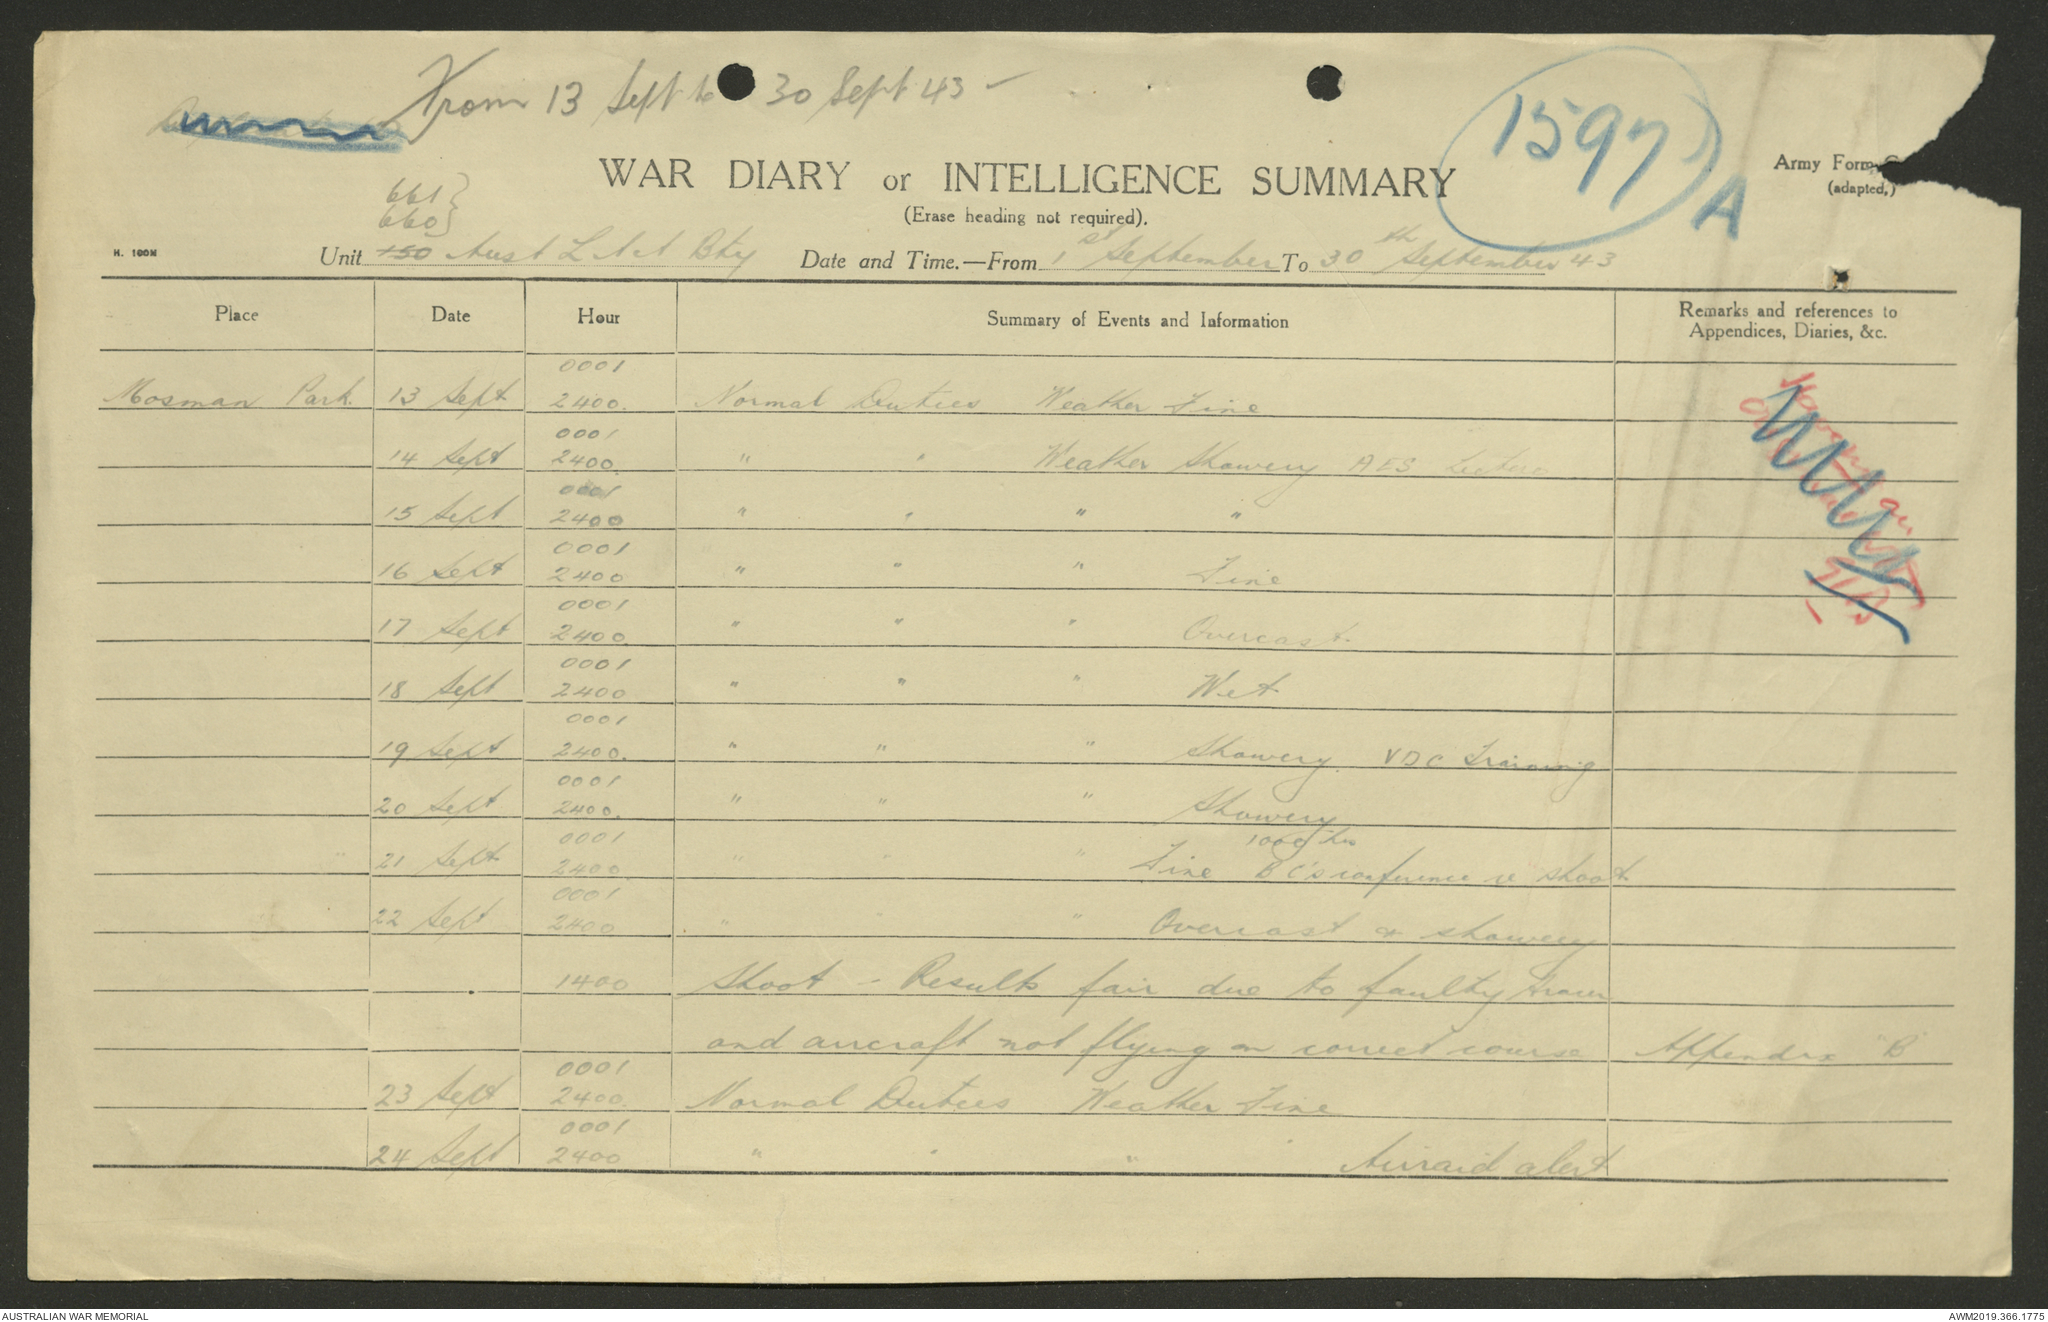 From 13 Sept to 30 Sept 43 -
1597
A
WAR DIARY or INTELLIGENCE SUMMARY
Army Form
(adapted.)
(Erase heading not required).
661 }
660 }
H. 100M
Unit 150 Aust L AA Bty Date and Time.—From 1st September To 30th September 43
Place Date Hour Summary of Events and Information Remarks and references to Appendices, Diaries, &c.
0001
Mosman Park. 13 Sept 2400. Normal Duties Weather Fine
0001
14 Sept 2400. " " Weather Showery AES Lecture
0001
15 Sept 2400 " " " "
0001
16 Sept 2400 " " " Fine
0001
17 Sept 2400. " " " Overcast.
0001
18 Sept 2400 " " " Wet
0001
19 Sept 2400. " " " Showery. VDC Training
0001
20 Sept 2400. " " " Showery
0001 1000 hrs
21 Sept 2400. " " " Fine BC's conference re shoot
0001
22 Sept 2400 " " " Overcast & showery
1400 Shoot - Results fair due to faulty tracer
and aircraft not flying on correct course Appendix "B"
0001
23 Sept 2400. Normal Duties Weather Fine
0001
24 Sept 2400 " " " " Airraid alert
AUSTRALIAN WAR MEMORIAL
AWM2019.366.1775